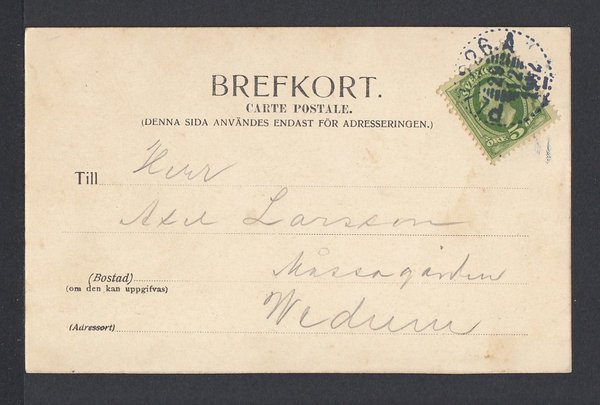 BREFKORT.
CARTE POSTALE.
(DENNA SIDA ANVÄNDES ENDAST FÖR ADRESSERINGEN.)
Till Herr
Axel Larsson
(Bostad) Mässagården
(om den kan uppgifvas)
Wedum
(Adressort)
5 ÖRE 5